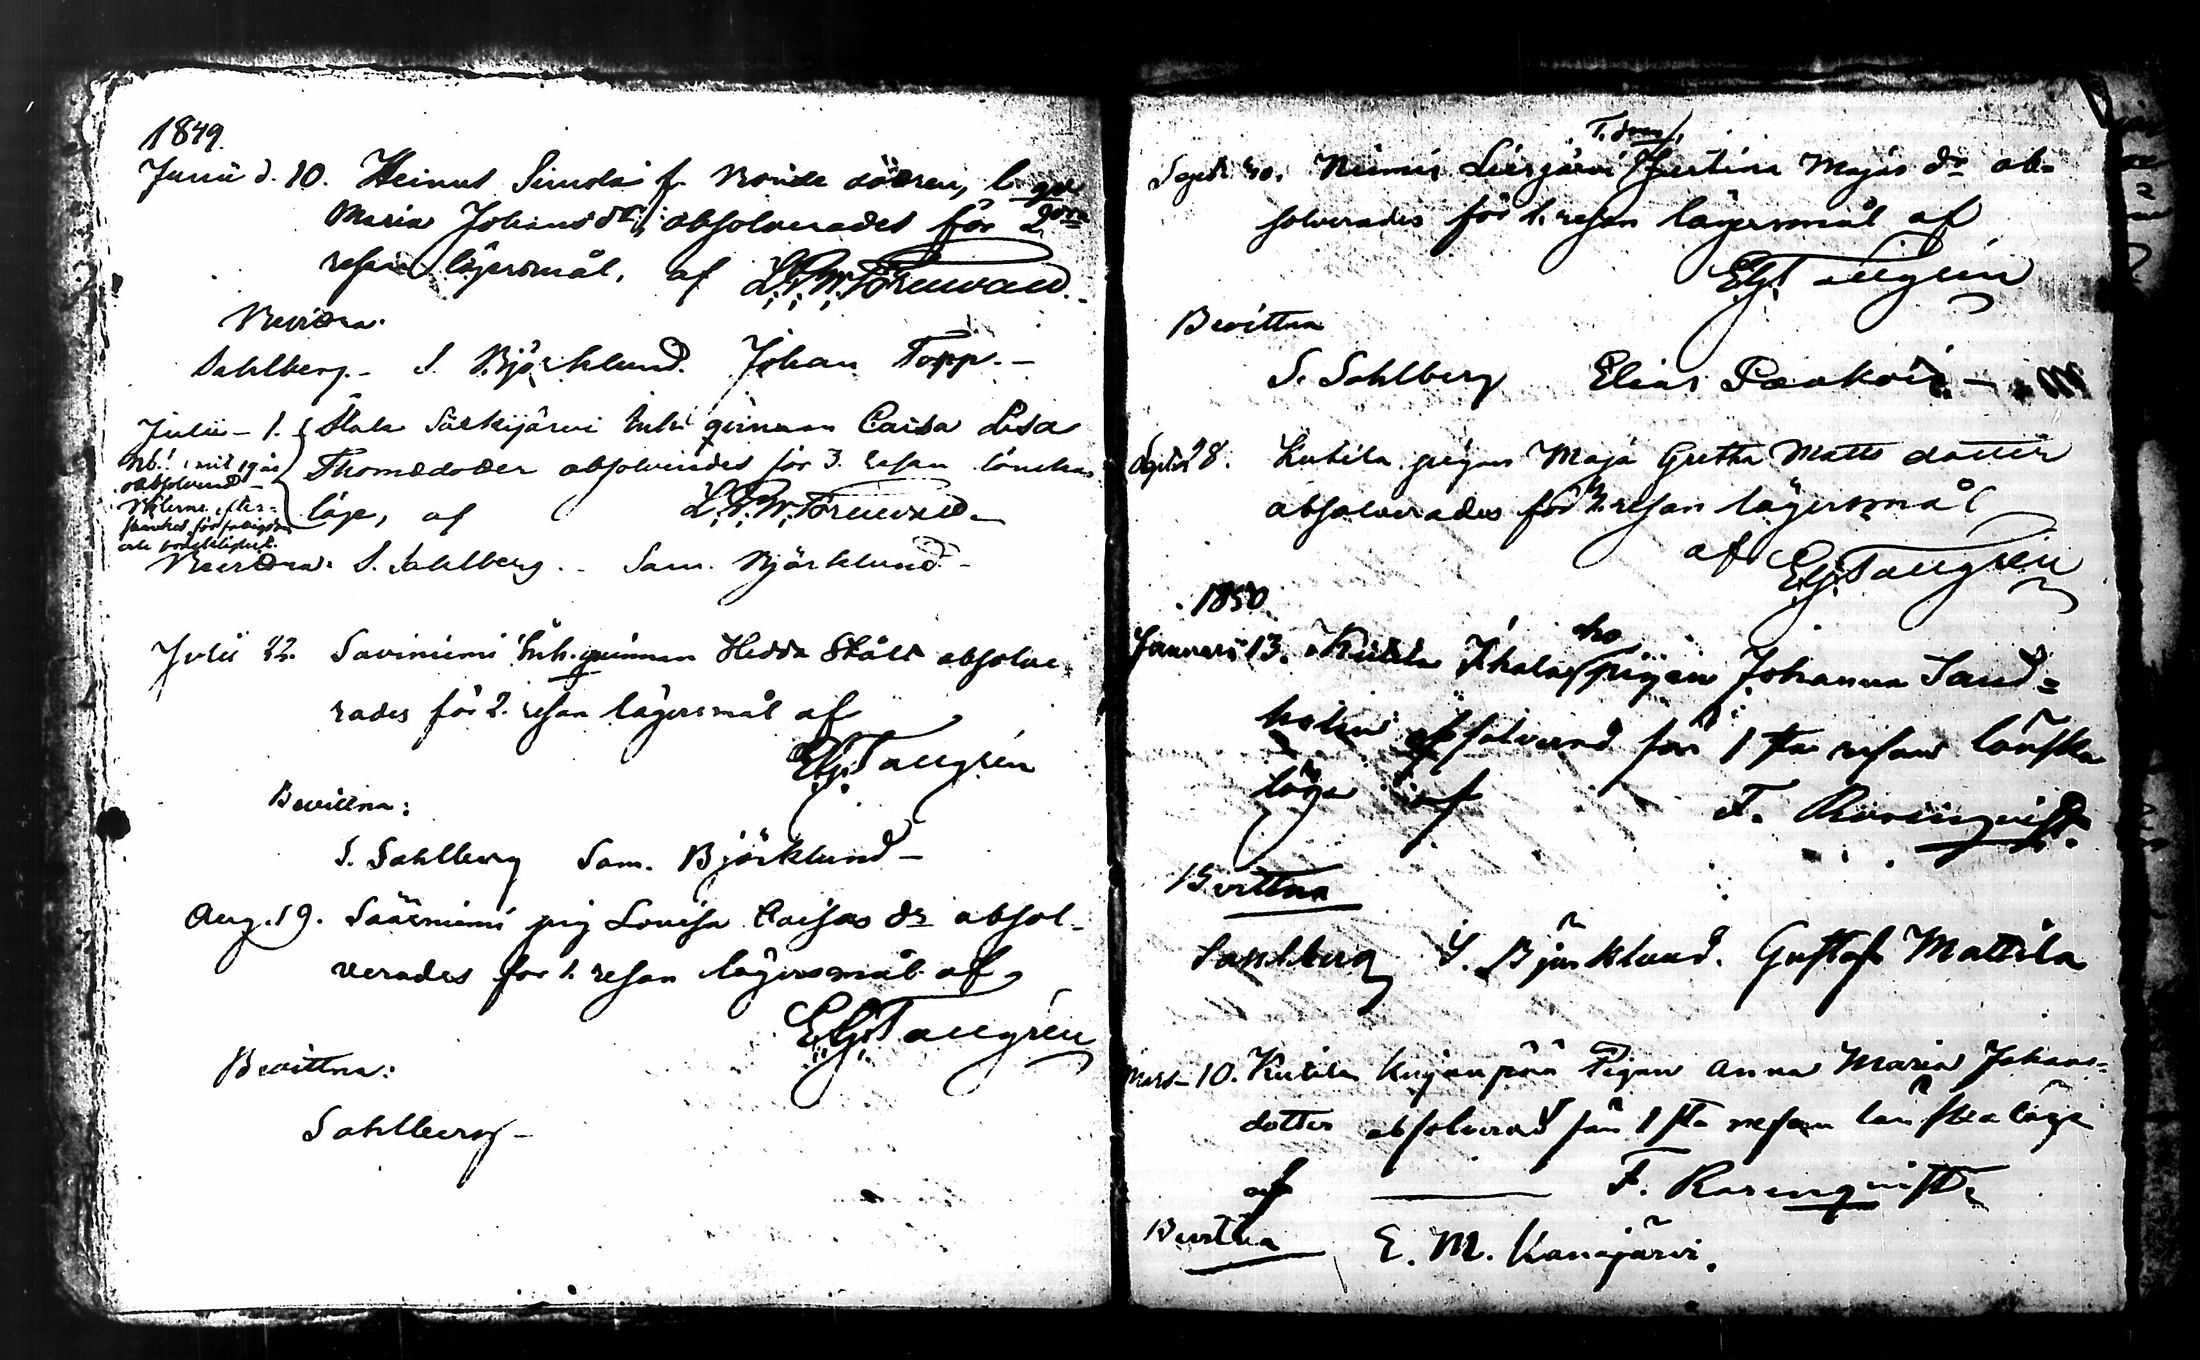 1849.
Junii d. 10. Heinus Simola f. Bonde dottren,
Maria Johansdr, absolverades för 2dra
resan lägersmål, af L.P.W. Törnwald.
Bevittna:
Sahlberg. - S. Björklund. Johan Topp. -
Julii - 1. Särkijärvi Inh. qvinnan Caisa Lisa
Thomædotter absolverades för 3. resan lönska
läge, af L.P.W. Törnwald.
Bevittna: S. Sahlberg. - Sam. Björklund -
Julii 22. Saviniemi Inh. qvinnan Hedda Ståhl absolve
rades för 2. resan lägersmål af
E.G. Tangrén
Bevittna:
S. Sahlberg Sam. Björklund -
Aug. 19. Sääxniemi pig Lovisa Caisas dr absol-
verades för 1. resan lägersmål af
E.G. Tangrén
Bevittna:
Sahlberg -
Septr 30. Niemis Liesjärvi Justina Majas dr ab-
solverades för 1. resan lägersmål af
E.G. Tangrén
Bevittna
S. Sahlberg Elias
28. Kutila pigan Maja Gretha Matts dotter
absolverades för resan lägersmål
af E.G. Tangrén
1850.
Januari 13. Kutila pigan Johanna Sand=
holm absolverad för 1sta resan lönska
läge af F. Rosenqvist.
Bevittna
Sahlberg S. Björklund. Gustaf Mattila
Mars - 10. Kutila Kujanpää Pigan Anna Maria Johans=
dotter absolverad för 1sta resan lönska läge
af F. Rosenqvist
Bevittna E. M. Kanajärvi.